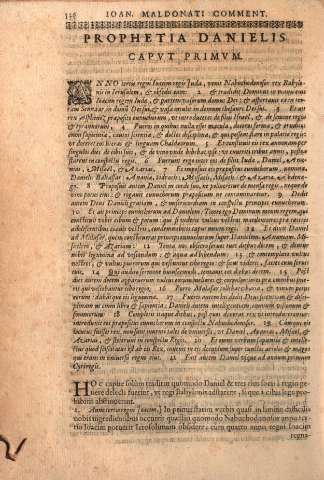 IOAN. MALDONATI COMMENT.
PROPHETIA DANIELIS
CAPVT PRIMVM.
ANNO tertio regni Ioacim regis Iuda, venit Nabuchodonosor rex Baby-
lonis in Ierusalem, & obsedit eam: 2 & tradidit Dominus in manu eius
Ioacim regem Iuda, & partem vasorum domus Dei; & asportauit ea in ter-
ram Sennaar in domum Dei sui, & vasa intulit in domum thesauri Dei sui. 3 Et ait
rex Asphenez præposito eunuchorum, vt introduceret de filiis Israel, & de semine regio
& tyrannorum, 4 Pueros in quibus nulla esset macula, decoros forma, & eruditos
omni sapientia, cautos scientia, & doctos disciplina, & qui possent stare in palatio regis,
vt doceret eos literas & linguam Chaldæorum.
starent in conspectu regis. 6 Fuerunt ergo inter eos de filiis Iuda, Daniel, Ana-
nias, Misael, & Azarias. 7 Et imposuit eis præpositus eunuchorum, nomina,
8 Proposuit autem Daniel in corde suo, ne pollueretur de mensa regis, neque de
vino potus eius; & rogauit eunuchorum præpositum ne contaminaretur. 9 Dedit
autem Deus Danieli gratiam, & misericordiam in conspectu principis eunuchorum.
10 Et ait princeps eunuchorum ad Danielem; Timeo ego Dominum meum regem, qui
constituit vobis cibum & potum: qui si viderit vultus vestros macilentiores præ cæteris
adolescentibus coæuis vestris, condemnabitis caput meum regi. 11 Et dixit Daniel
ad Malasar, quem constituerat princeps eunuchorum super Danielem, Ananiam, Mi-
saelem, & Azariam: 12 Tenta nos obsecro seruos tuos diebus decem, & dentur
nobis legumina ad vescendum, & aqua ad bibendum: 13 & contemplare vultus
nostros, & vultus puerorum qui vescuntur cibo regio; & sicut videris, facies cum seruis
tuis. 14 Qui audito sermone huiuscemodi, tentauit eos diebus decem. 15 Post
dies autem decem apparuerunt vultus eorum meliores & corpulentiores præ omnibus pue-
ris qui vescebantur cibo regio. 16 Porro Malasar tollebat cibaria, & vinum potus
eorum: dabatque eis legumina. 17 Pueris autem his dedit Deus scientiam & disci-
plinam in omni libro & sapientia; Danieli autem intelligentiam omnium visionum &
somniorum. 18 Completis itaque diebus, post quos dixerat rex vt introducerentur:
introduxit eos præpositus eunuchorum in conspectu Nabuchodonosor. 19 Cumque eis
locutus fuisset rex, non sunt inuenti tales de vniuersis, vt Daniel, Ananias, Misael, &
Azarias, & steterunt in conspectu regis. 20 Et omne verbum sapientiæ & intelle-
ctus quod sciscitatus est ab eis rex, inuenit in eis decuplum super cunctos ariolos & magos
qui erant in vniuerso regno eius. 21 Fuit autem Daniel vsque ad annum primum
Cyri regis.
HOc caput solum tradit quomodo Daniel & tres eius socii à regio ge-
nere delecti fuerint, vt regi Babylonis adstarent, & quòd à cibis lege pro-
hibitis abstinuerint.
1. Anno tertio regni Ioacim.] In primis statim verbis quasi in limine difficilis
nobis ingredientibus occurrit quæstio, quomodo Nabuchodonosor anno ter-
tio Ioacim potuerit Ierosolimam obsidere; cum quarto anno regni Ioacim
regna-